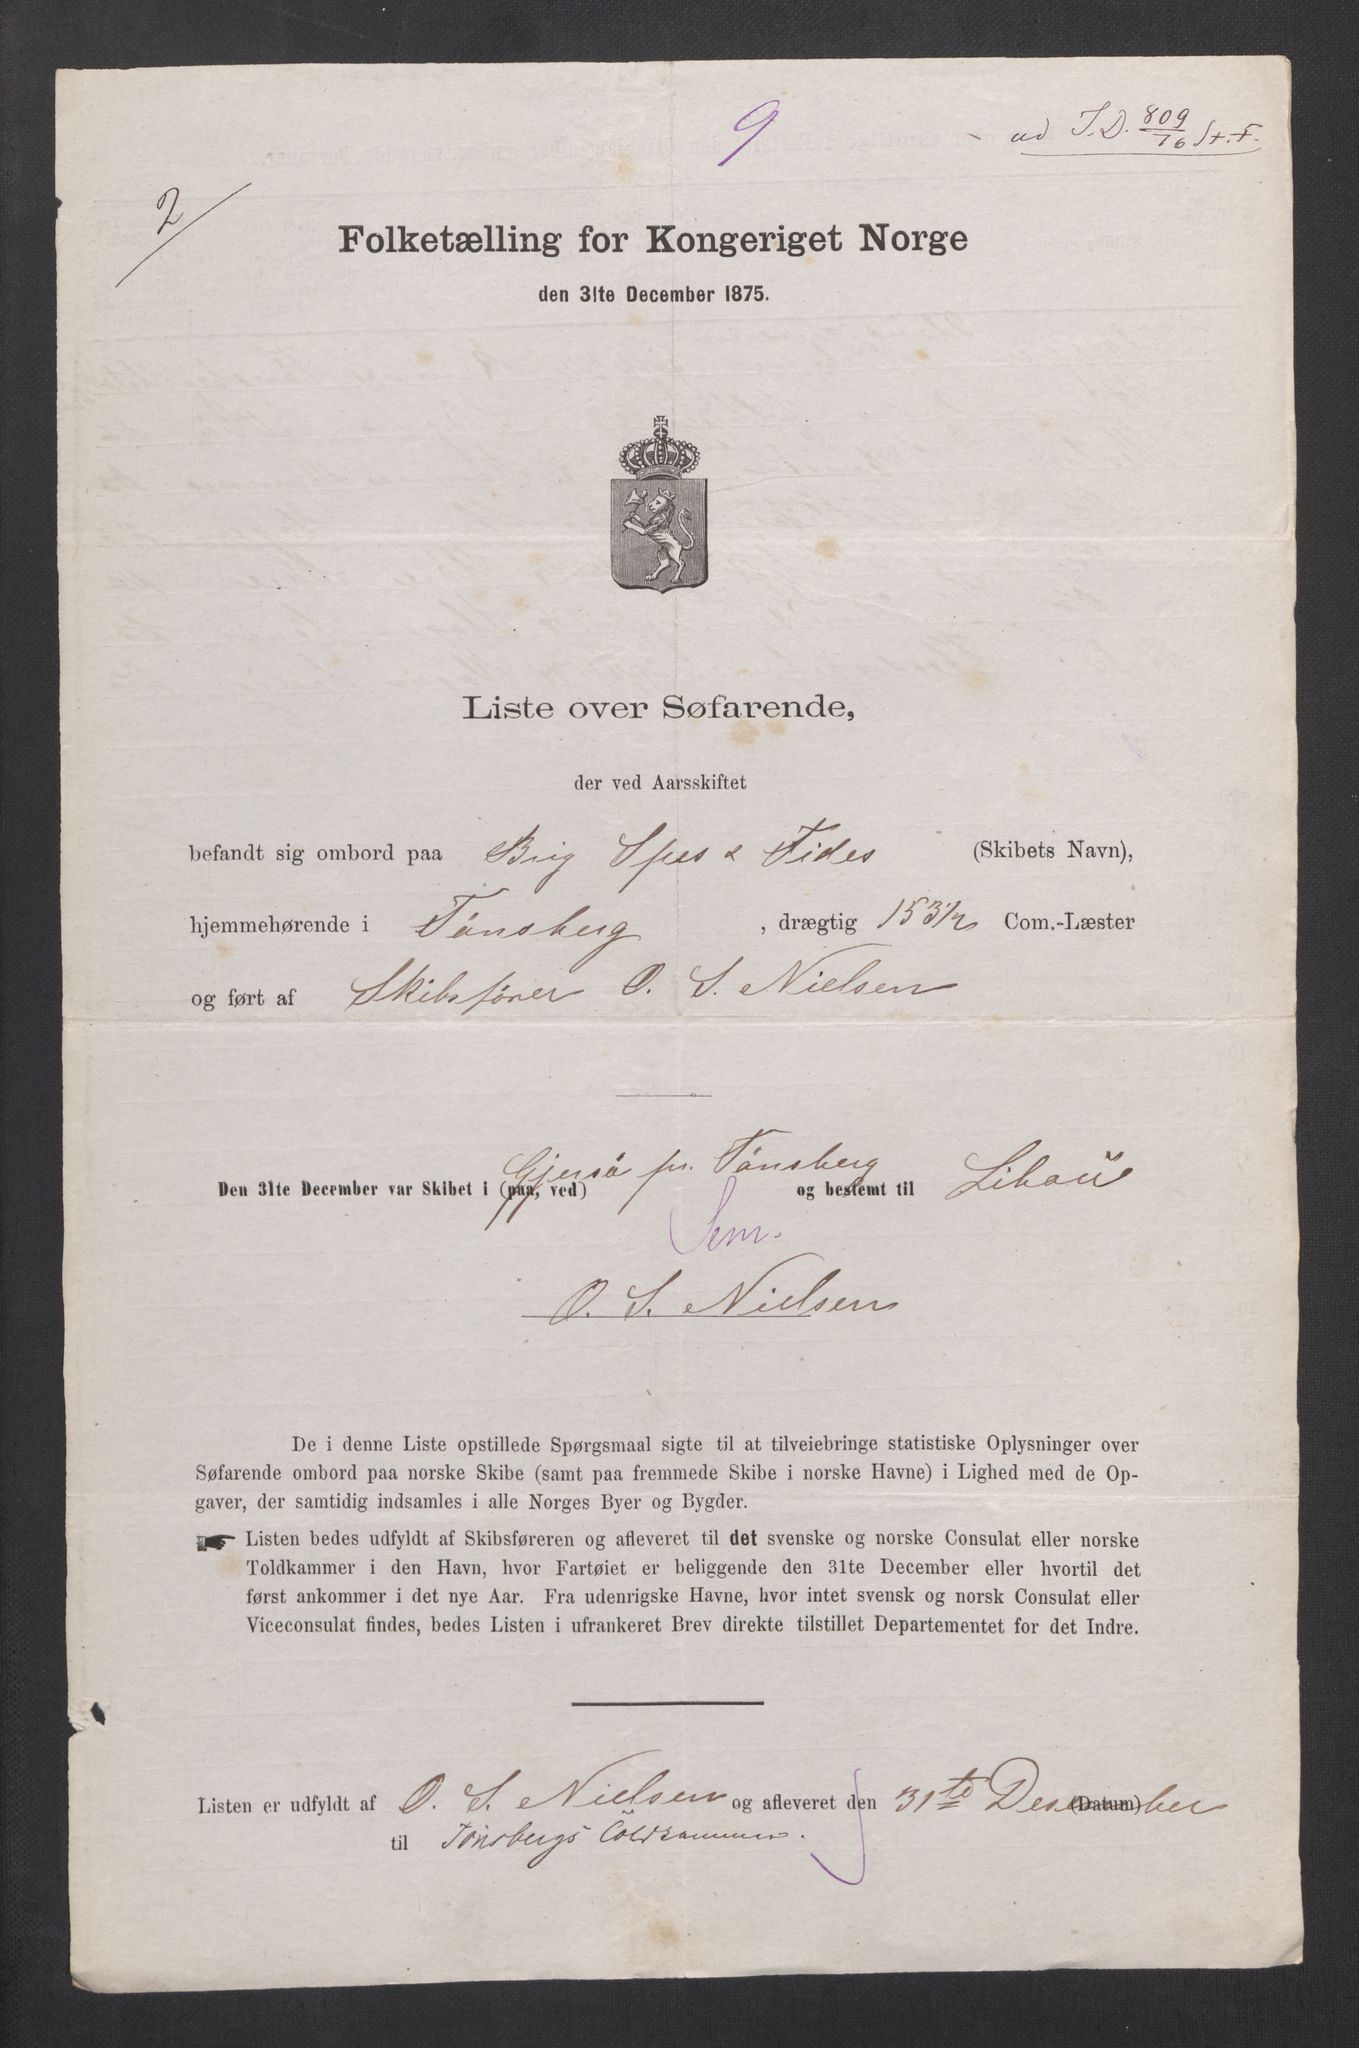 9
ad I.D. 809/76 St. F.
2/
Folketælling for Kongeriget Norge
den 31te December 1875.
Liste over Søfarende,
der ved Aarsskiftet
befandt sig ombord paa Brig Spes & Fides (Skibets Navn),
hjemmehørende i Tönsberg , drægtig 153 1/2 Com.-Læster
og ført af Skibsförer O. S. Nielsen
Den 31te December var Skibet i (paa, ved) Gjersö pr. Tönsberg og bestemt til Libau
Sem.
O. S. Nielsen
De i denne Liste opstillede Spørgsmaal sigte til at tilveiebringe statistiske Oplysninger over
Søfarende ombord paa norske Skibe (samt paa fremmede Skibe i norske Havne) i Lighed med de Op-
gaver, der samtidig indsamles i alle Norges Byer og Bygder.
☛ Listen bedes udfyldt af Skibsføreren og afleveret til det svenske og norske Consulat eller norske
Toldkammer i den Havn, hvor Fartøiet er beliggende den 31te December eller hvortil det
først ankommer i det nye Aar. Fra udenrigske Havne, hvor intet svensk og norsk Consulat eller
Viceconsulat findes, bedes Listen i ufrankeret Brev direkte tilstillet Departementet for det Indre.
Listen er udfyldt af O. S. Nielsen og afleveret den 31te Desember (Datum)
til Tönsbergs Toldkammer.